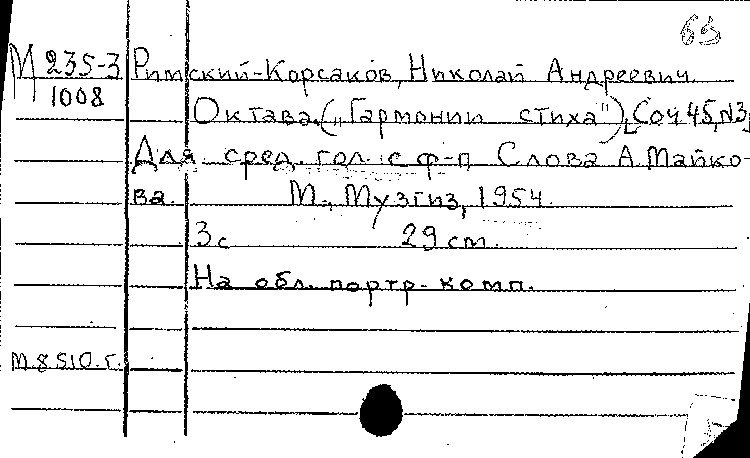 63
М 235-3 Римский-Корсаков, Николай Андреевич.
1008
Октава. („Гармонии стиха"), [Соч. 45, №3]
Для сред. гол. с ф-п Слова А. Майко-
ва. М., Музгиз, 1954.
3 с 29 cm.
На обл. портр. комп.
М. 8 510. г.